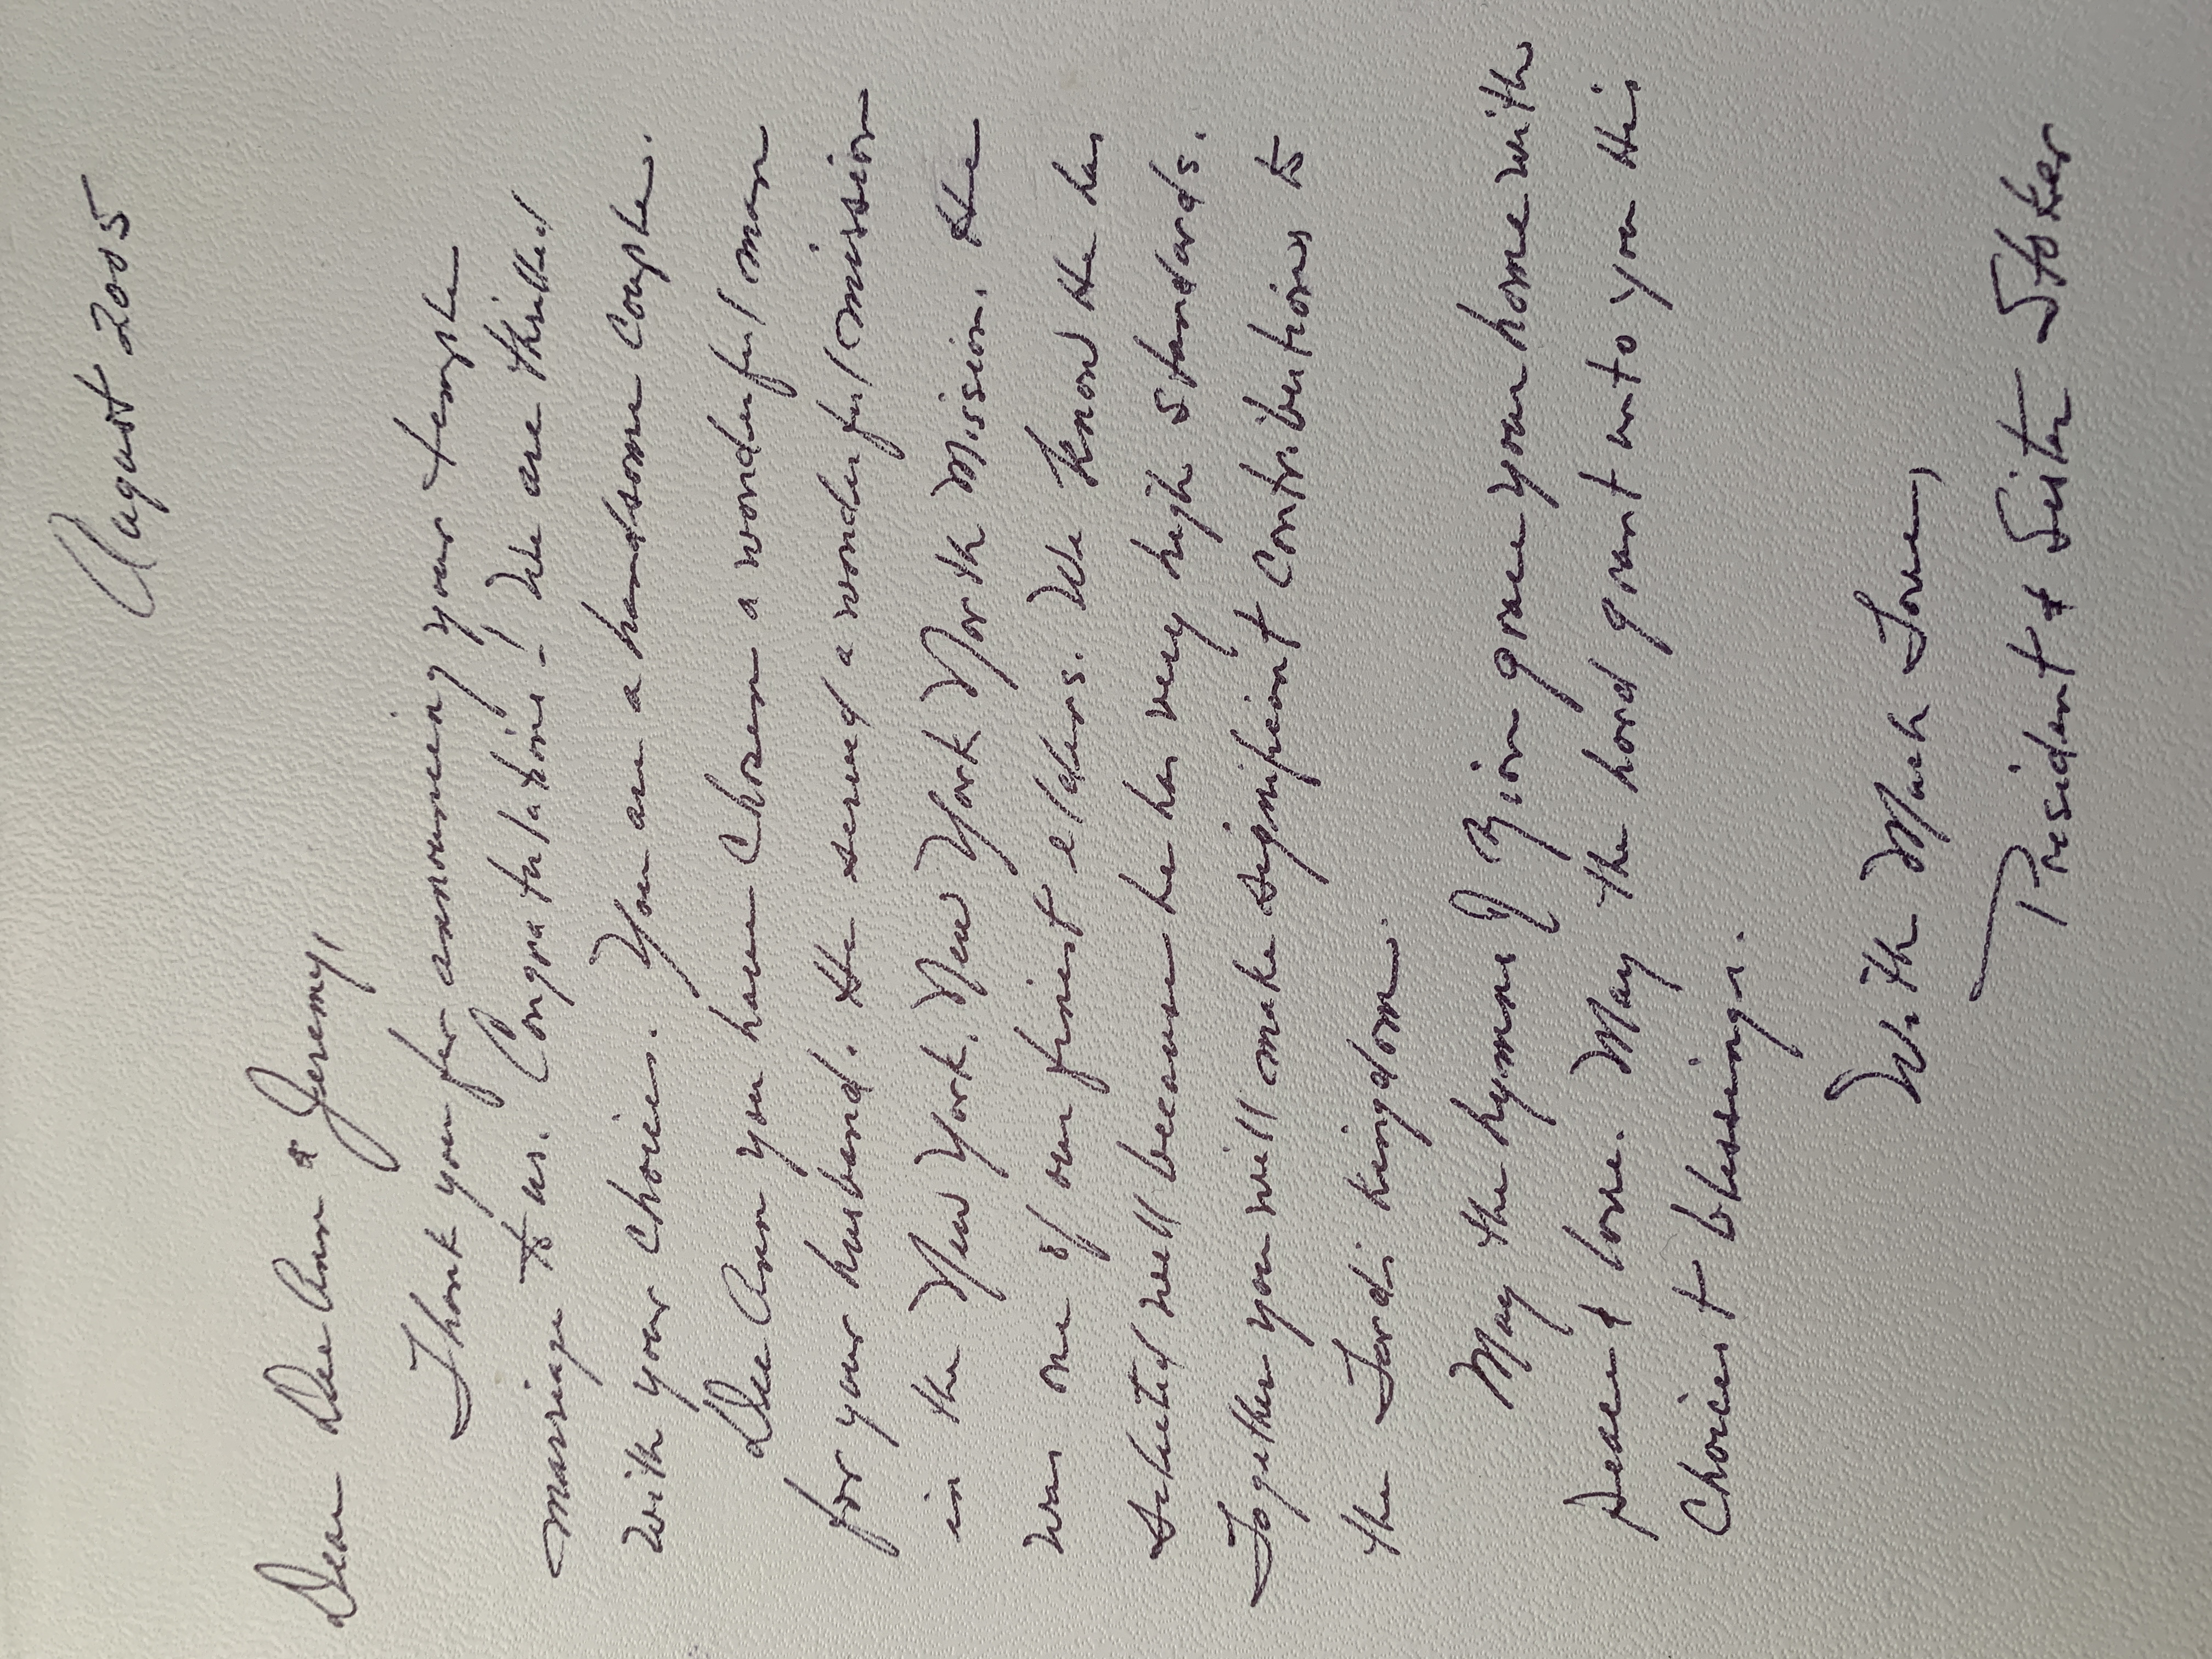 August 2005
Dear Dee Ann & Jeremy,
Thank you for announcing your temple
marriage to us. Congratulations! We are thrilled
with your choices. You are a handsome couple.
Dee Ann you have chosen a wonderful man
for your husband. He served a wonderful mission
in the New York, New York North Mission. He
was one of our finest elders. We know he has
selected well because he has very high standards.
Together you will make significant contributions to
the Lord's kingdom.
May the hymns of Zion grace your home with
peace & love. May the Lord grant unto you His
choicest blessings.
With Much Love,
President & Sister Stoker